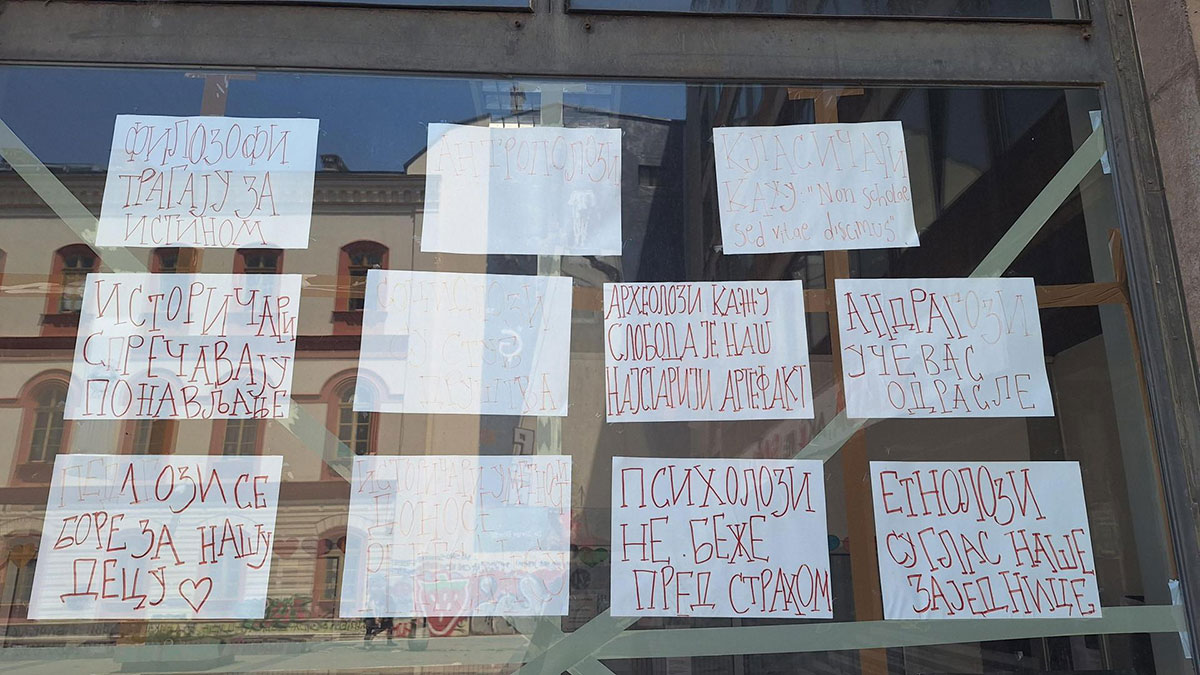 ФИЛОЗОФИ
ТРАГАЈУ ЗА
ИСТИНОМ
АНТРОПОЛОЗИ
КЛАСИЧАРИ
КАЖУ: "Non scholae
sed vitae discimus"
ИСТОРИЧАРИ
СПРЕЧАВАЈУ
ПОНАВЉАЊЕ
СОЦИОЛОЗИ
У
АРХЕОЛОЗИ КАЖУ
СЛОБОДА ЈЕ НАШ
НАЈСТАРИЈИ АРТЕФАКТ
АНДРАГОЗИ
УЧЕ ВАС
ОДРАСЛЕ
ПЕДАГОЗИ СЕ
БОРЕ ЗА НАШУ
ДЕЦУ ♡
ИСТОРИЧАРИ УМЕТНОСТИ
ДОНОСЕ
ПСИХОЛОЗИ
НЕ БЕЖЕ
ПРЕД СТРАХОМ
ЕТНОЛОЗИ
СУ ГЛАС НАШЕ
ЗАЈЕДНИЦЕ